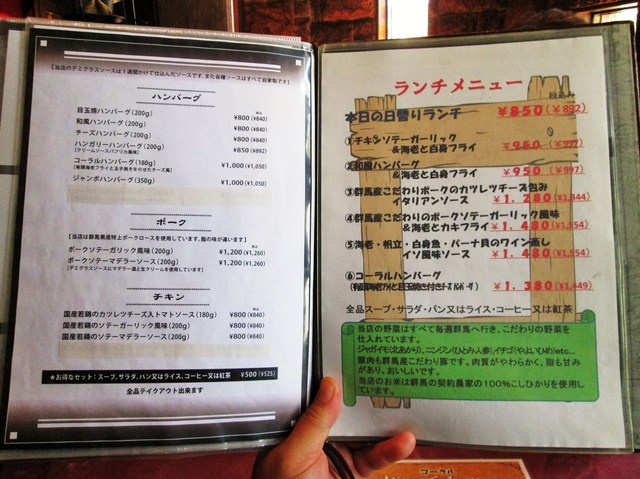 【当店のデミグラスソースは1週間かけて仕込んだソースです。また各種ソースはすべて自家製です】
ハンバーグ
税込
目玉焼ハンバーグ(200g) ¥800 (¥840)
和風ハンバーグ(200g) ¥800 (¥840)
チーズハンバーグ(200g) ¥800 (¥840)
ハンガリーハンバーグ(200g) ¥850 (¥892)
(クリームソースパプリカ風味)
コーラルハンバーグ(180g) ¥1,000 (¥1,050)
ジャンボハンバーグ(350g) ¥1,000 (¥1,050)
ポーク
【当店は群馬県産特上ポークロースを使用しています。脂の味が違います】
税込
ポークソテーガーリック風味(200g) ¥1,200 (¥1,260)
ポークソテーマデラーソース(200g) ¥1,200 (¥1,260)
(デミグラスソースにマデラー酒と生クリームを使用しています)
チキン
税込
国産若鶏のカツレツチーズ入トマトソース(180g) ¥800 (¥840)
国産若鶏のソテーガーリック風味(200g) ¥800 (¥840)
国産若鶏のソテマデラーソース(200g) ¥800 (¥840)
★お得なセット:スープ、サラダ、パン又はライス、コーヒー又は紅茶 ¥500 (¥525)
全品テイクアウト出来ます
ランチメニュー
税込み
本日の日替りランチ ¥850(¥892)
①チキンソテーガーリック
&海老と白身フライ ¥950(¥997)
②和風ハンバーグ
&海老と白身フライ ¥950(¥997)
③群馬産こだわりポークのカツレツチーズ包み
イタリアンソース ¥1,280(¥1,344)
④群馬産こだわりのポークソテーガーリック風味
&海老とカキフライ ¥1,480(¥1,554)
⑤海老・帆立・白身魚・パーナ貝のワイン蒸し
イソ風味ソース ¥1,480(¥1,554)
⑥コーラルハンバーグ
¥1,380(¥1,449)
全品スープ・サラダ・パン又はライス・コーヒー又は紅茶
当店の野菜はすべて毎週群馬へ行き、こだわりの野菜を
仕入れています。
ジャガイモ(北あかり)、ニンジン(ひとみ人参)、イチゴ(やよいひめ)etc…
豚肉も群馬産こだわり豚です。肉質がやわらかく、脂も甘み
があり、おいしいです。
当店のお米は群馬の契約農家の100%こしひかりを使用し
ています。
コーラル